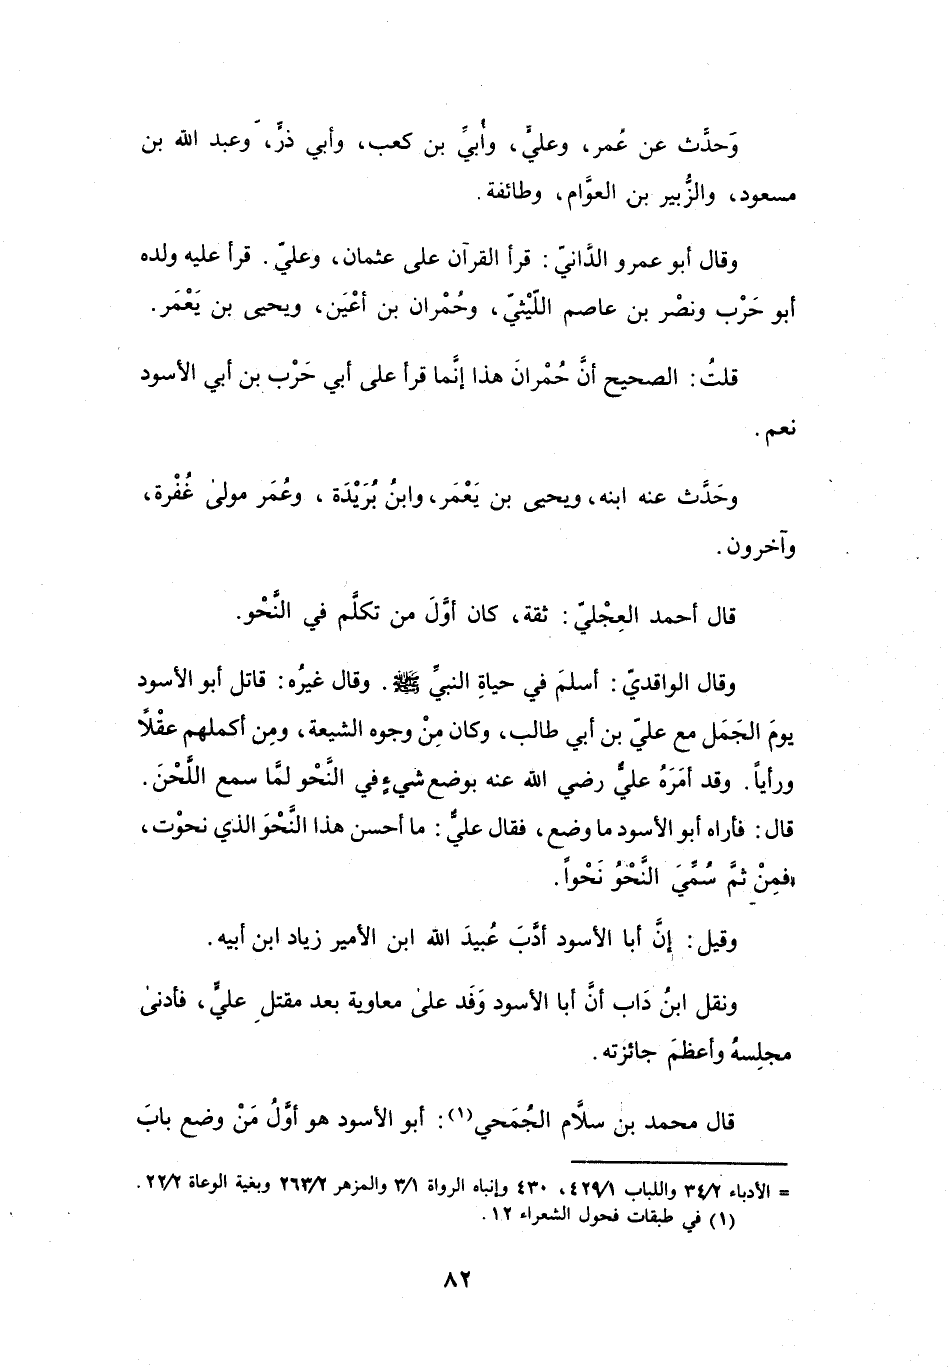 وَحدَّث عن عُمر، وعليٍّ، وأُبيِّ بن كعب، وأبي ذرٍّ، وعبد الله بن
مسعود، والزُّبير بن العوَّام، وطائفة.
وقال أبو عمرو الدَّانيّ: قرأ القرآن على عثمان، وعليّ. قرأ عليه ولده
أبو حَرْب ونصْر بن عاصم اللّيْثيّ، وحُمْران بن أعْيَن، ويحيى بن يَعْمَر.
قلتُ: الصحيح أنَّ حُمْرانَ هذا إنَّما قرأ على أبي حَرْب بن أبي الأسود
نعم.
وحَدَّث عنه ابنه، ويحيى بن يَعْمَر، وابنُ بُرَيْدَة، وعُمَر مولىٰ غُفْرة،
وآخرون.
قال أحمد العِجْليّ: ثقة، كان أوَّلَ من تكلَّم في النَّحْو.
وقال الواقديّ: أسلمَ في حياةِ النبيِّ ﷺ. وقال غيرُه: قاتل أبو الأسود
يومَ الجَمَل مع عليّ بن أبي طالب، وكان مِنْ وجوه الشيعة، ومِن أكملهم عقْلًا
ورأياً. وقد أمَرَهُ عليٌّ رضي الله عنه بوضع شيءٍ في النَّحْو لمَّا سمع اللَّحْنَ.
قال: فأراه أبو الأسود ما وضع، فقال عليٌّ: ما أحسن هذا النَّحْوَ الذي نحوْت،
فمِنْ ثمَّ سُمِّيَ النَّحْوُ نَحْواً.
وقيل: إنَّ أبا الأسود أدَّبَ عُبيدَ الله ابن الأمير زياد ابن أبيه.
ونقل ابنُ دَاب أنَّ أبا الأسود وَفَد علىٰ معاوية بعد مقتلِ عليٍّ، فأدنىٰ
مجلِسهُ وأعظمَ جائزته.
قال محمد بن سلَّام الجُمَحي(١): أبو الأسود هو أوَّلُ مَنْ وضع بابَ
= الأدباء ٣٤/٢ واللباب ٤٢٩/١، ٤٣٠ وإنباه الرواة ٣/١ والمزهر ٢٦٣/٢ وبغية الوعاة ٢٢/٢.
(١) في طبقات فحول الشعراء ١٢.
٨٢